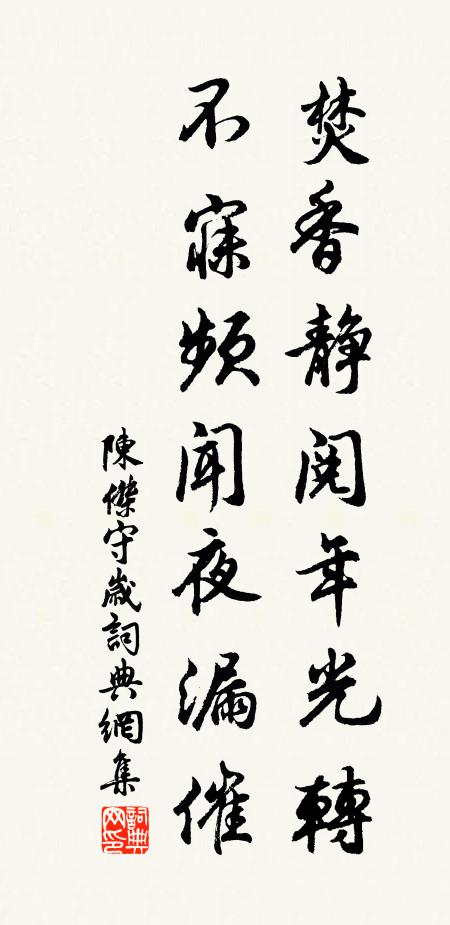 焚香静閱年光轉
不寐頻聞夜漏催
陳傑守歲詞典網集
詞典网印